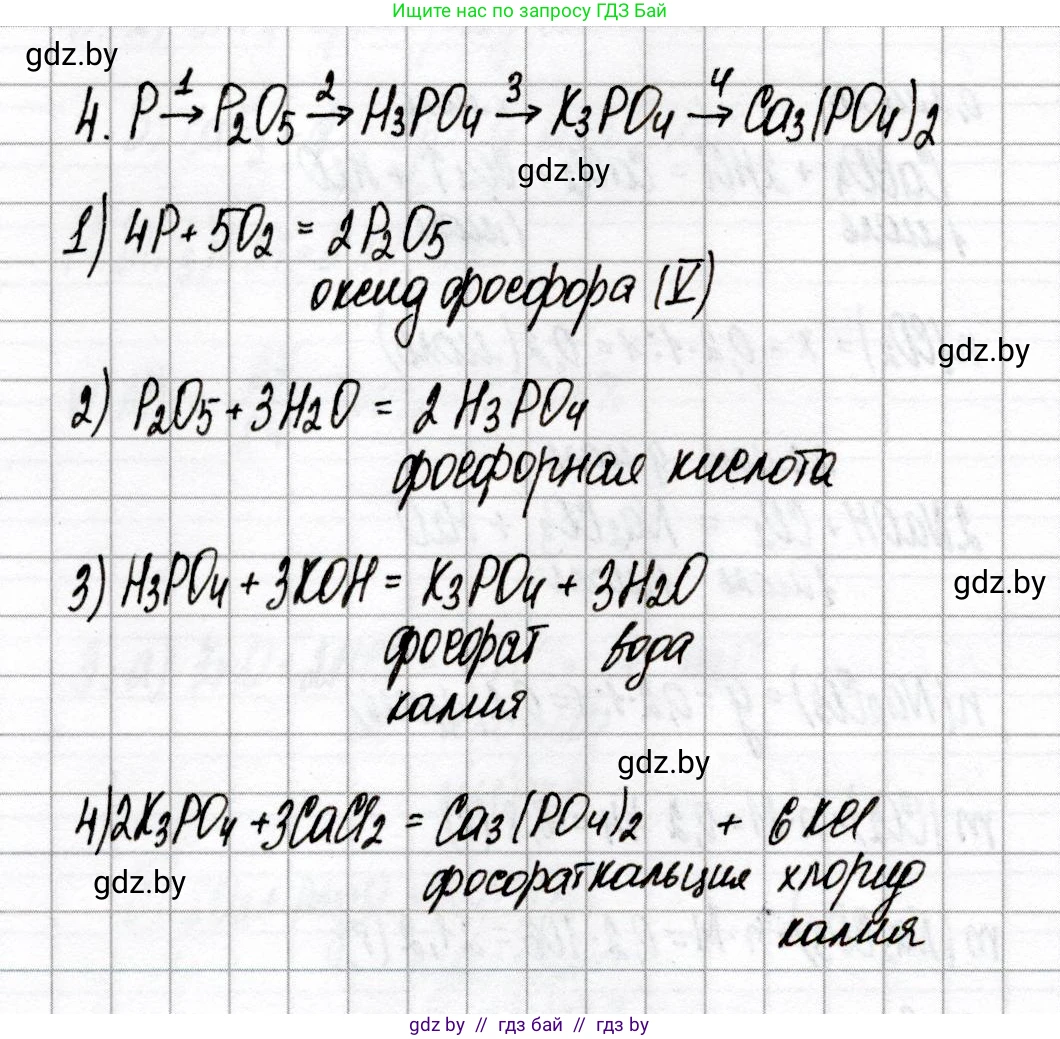 Ищите нас по запросу ГДЗ Бай
gdz.by
4. P →1 P2O5 →2 H3PO4 →3 K3PO4 →4 Ca3(PO4)2
gdz.by
1) 4P + 5O2 = 2P2O5
оксид фосфора (V)
gdz.by
2) P2O5 + 3H2O = 2 H3PO4
фосфорная кислота
gdz.by
3) H3PO4 + 3KOH = K3PO4 + 3H2O
фосфорат вода
калия
gdz.by
4) 2K3PO4 + 3CaCl2 = Ca3(PO4)2 + 6 KCl
gdz.by
фосфорат кальция хлорид
калия
gdz.by // гдз бай // gdz.by